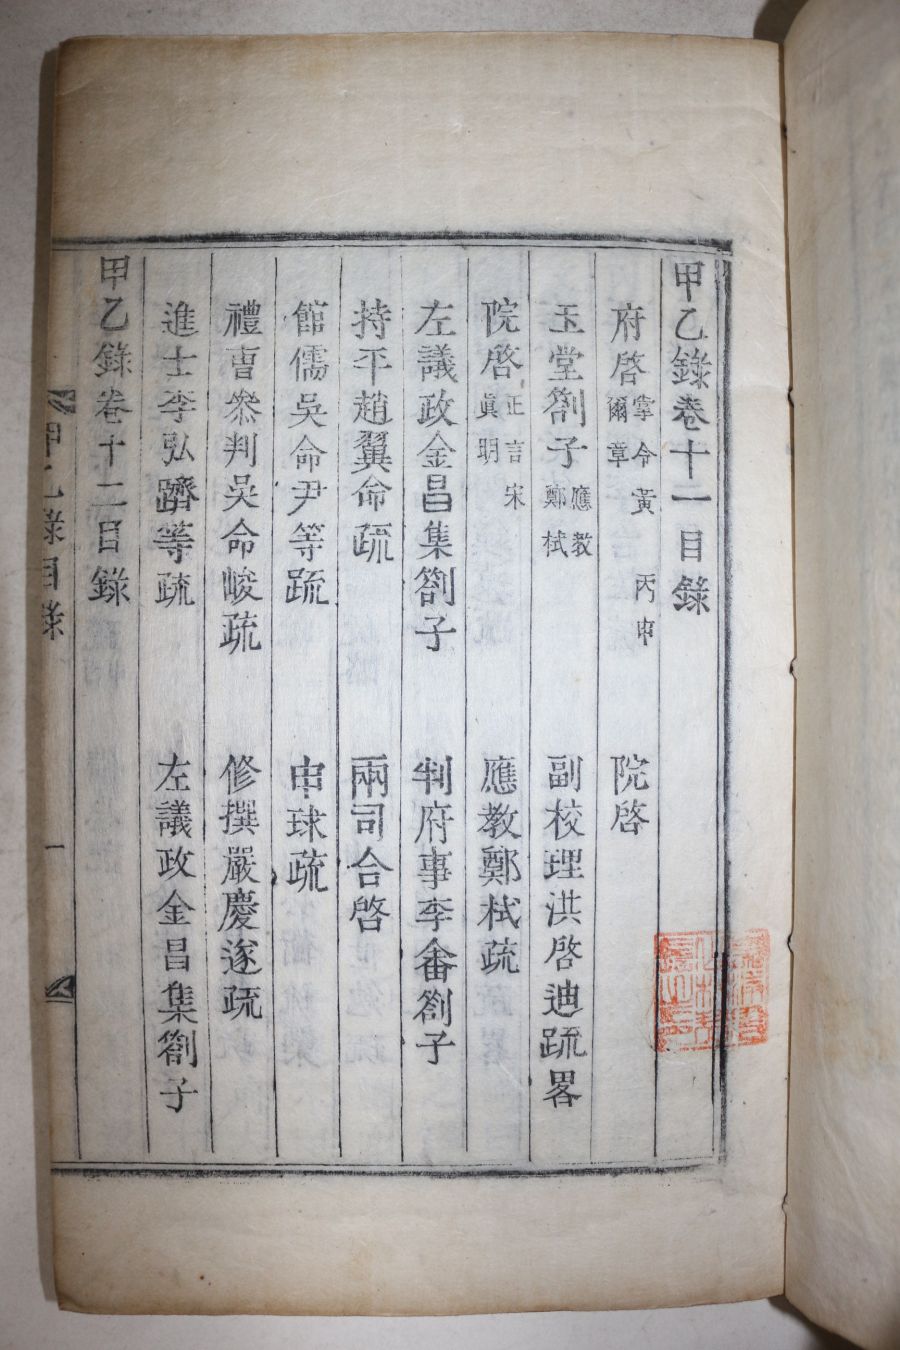 甲乙錄卷十一目錄
府啓 掌令黃爾章 丙申 院啓
玉堂劄子 應教鄭栻 副校理洪啓迪疏畧
院啓 正言宋眞明 應教鄭栻疏
左議政金昌集劄子 判府事李畬劄子
持平趙翼命疏 兩司合啓
館儒吳命尹等疏 申球疏
禮曹叅判吳命峻疏 修撰嚴慶遂疏
進士李弘躋等疏 左議政金昌集劄子
甲乙錄卷十二目錄
甲乙錄目錄 一